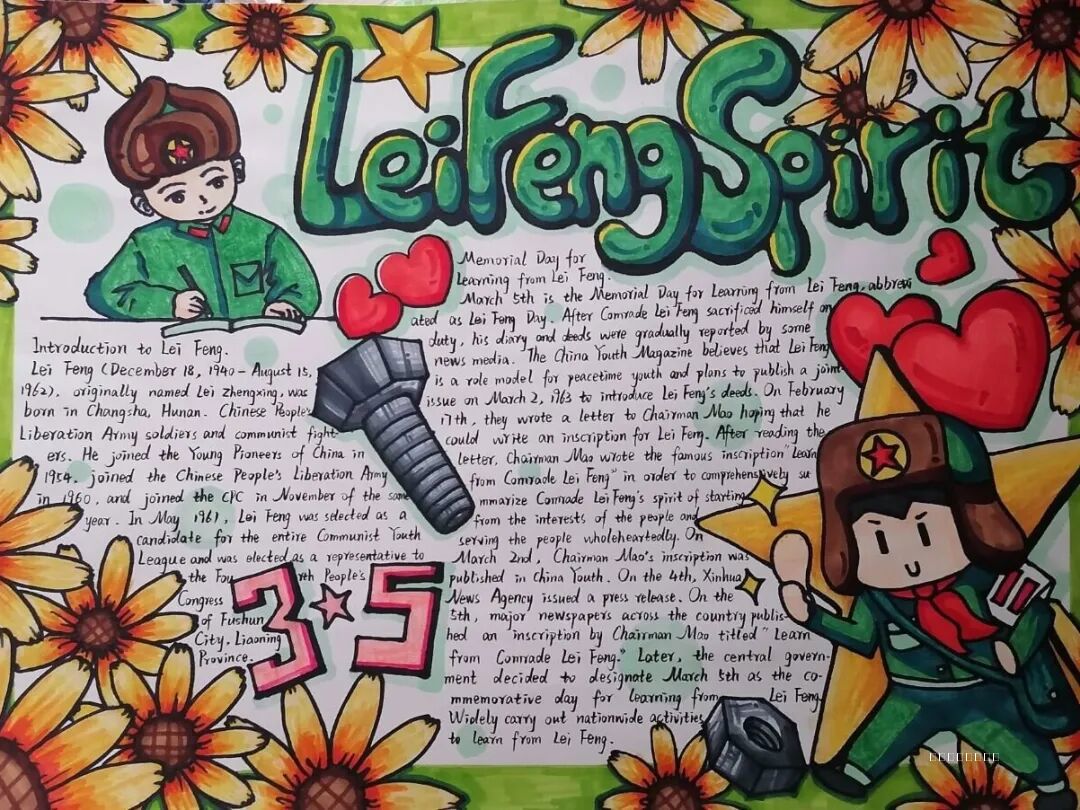 Lei Feng Spirit
Introduction to Lei Feng.
Lei Feng (December 18, 1940 - August 15,
1962), originally named Lei Zhengxing, was
born in Changsha, Hunan. Chinese People's
Liberation Army soldiers and communist fight
ers. He joined the Young Pioneers of China in
1954, joined the Chinese People's Liberation Army
in 1960, and joined the CPC in November of the same
year. In May 1961, Lei Feng was selected as a
candidate for the entire Communist Youth
League and was elected as a representative to
the Fou rth People's
Congress
of Fushun
City, Liaoning
Province.
3 5
Memorial Day for
Learning from Lei Feng.
March 5th is the Memorial Day for Learning from Lei Feng, abbrevi
ated as Lei Feng Day. After Comrade Lei Feng sacrificed himself on
duty, his diary and deeds were gradually reported by some
news media. The China Youth Magazine believes that Lei Feng
is a role model for peacetime youth and plans to publish a joint
issue on March 2, 1963 to introduce Lei Feng's deeds. On February
17th, they wrote a letter to Chairman Mao hoping that he
could write an inscription for Lei Feng. After reading the
letter, Chairman Mao wrote the famous inscription "Learn
from Comrade Lei Feng" in order to comprehensively su
mmarize Comrade Lei Feng's spirit of starting
from the interests of the people and
serving the people wholeheartedly. On
March 2nd, Chairman Mao's inscription was
published in China Youth. On the 4th, Xinhua
News Agency issued a press release. On the
5th, major newspapers across the country publis-
hed an "inscription by Chairman Mao titled "Learn
from Comrade Lei Feng." Later, the central govern-
ment decided to designate March 5th as the co-
mmemorative day for learning from Lei Feng.
Widely carry out nationwide activities
to learn from Lei Feng.